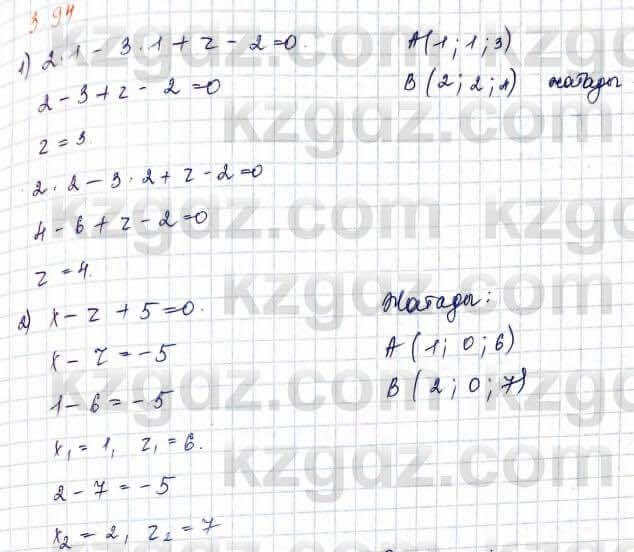 394
1) 2·1 - 3·1 + z - 2 = 0.
2 - 3 + z - 2 = 0
z = 3
2·2 - 3·2 + z - 2 = 0
4 - 6 + z - 2 = 0
z = 4.
A(1; 1; 3)
B(2; 2; 4) жатады
2) x - z + 5 = 0.
x - z = -5
1 - 6 = -5
x₁ = 1, z₁ = 6.
2 - 7 = -5
x₂ = 2, z₂ = 7
Жатады:
A(1; 0; 6)
B(2; 0; 7)
kzgdz.com